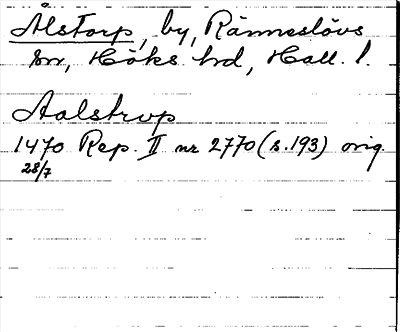 Ålstorp, by, Ränneslövs
sn, Höks hd, Hall. l.
Aalstrup
1470 Rep. II nr 2770 (s. 193) orig.
28/7